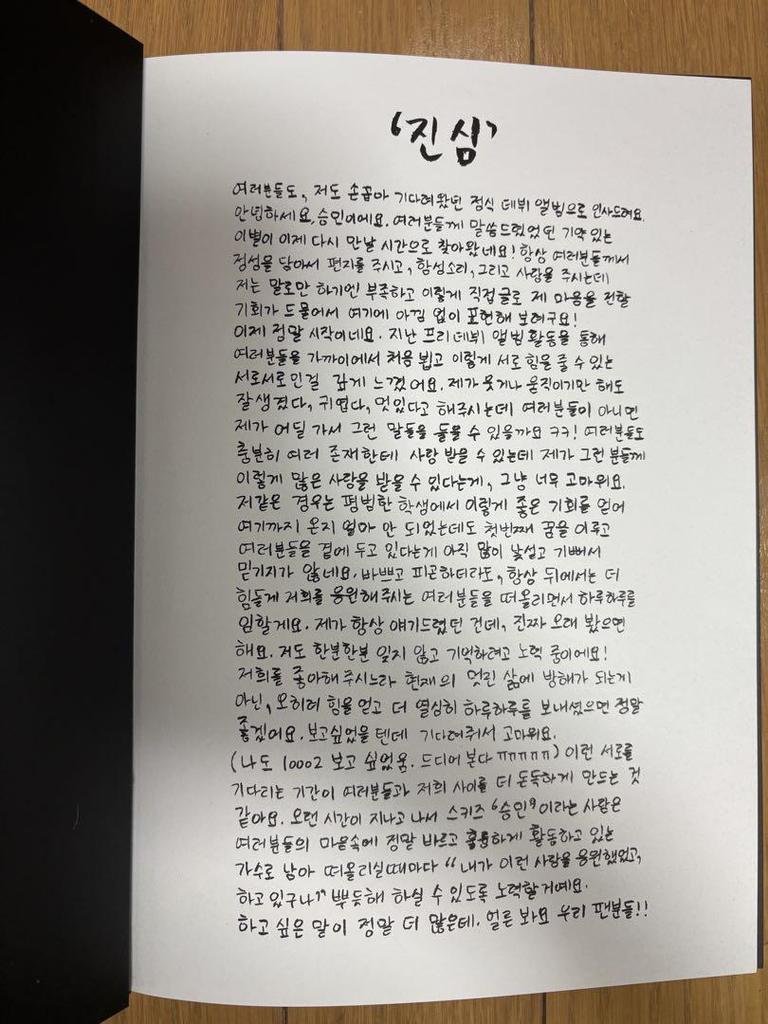 '진심'
여러분들도, 저도 손꼽아 기다려왔던 정식 데뷔 앨범으로 인사드려요.
안녕하세요, 승민이에요. 여러분들께 말씀드렸었던 기약 있는
이별이 이제 다시 만날 시간으로 찾아왔네요! 항상 여러분들께서
정성을 담아서 편지를 주시고, 함성소리, 그리고 사랑을 주시는데
저는 말로만 하기엔 부족하고 이렇게 직접 글로 제 마음을 전할
기회가 드물어서 여기에 아낌 없이 표현해 보려구요!
이제 정말 시작이네요. 지난 프리데뷔 앨범 활동을 통해
여러분들을 가까이에서 처음 뵙고 이렇게 서로 힘을 줄 수 있는
서로서로인걸 깊게 느꼈어요. 제가 웃거나 움직이기만 해도
잘생겼다, 귀엽다, 멋있다고 해주시는데 여러분들이 아니면
제가 어딜 가서 그런 말들을 들을 수 있을까요 ㅋㅋ! 여러분들도
충분히 여러 존재한테 사랑 받을 수 있는데 제가 그런 분들께
이렇게 많은 사랑을 받을 수 있다는게, 그냥 너무 고마워요.
저같은 경우는 평범한 학생에서 이렇게 좋은 기회를 얻어
여기까지 온지 얼마 안 되었는데도 첫번째 꿈을 이루고
여러분들을 곁에 두고 있다는게 아직 많이 낯설고 기뻐서
믿기지가 않네요. 바쁘고 피곤하더라도, 항상 뒤에서는 더
힘들게 저희를 응원해주시는 여러분들을 떠올리면서 하루하루를
임할게요. 제가 항상 얘기드렸던 건데, 진짜 오래 봤으면
해요. 저도 한분한분 잊지 않고 기억하려고 노력 중이에요!
저희를 좋아해 주시느라 현재의 멋진 삶에 방해가 되는게
아닌, 오히려 힘을 얻고 더 열심히 하루하루를 보내셨으면 정말
좋겠어요. 보고싶었을텐데 기다려줘서 고마워요.
(나도 10002 보고 싶었음. 드디어 본다 ㅠㅠㅠㅠㅠ) 이런 서로를
기다리는 기간이 여러분들과 저희 사이를 더 돈독하게 만드는 것
같아요. 오랜 시간이 지나고 나서 스키즈 "승민"이라는 사람은
여러분들의 마음속에 정말 바르고 훌륭하게 활동하고 있는
가수로 남아 떠올리실때마다 "내가 이런 사람을 응원했었고,
하고 있구나!" 뿌듯해 하실 수 있도록 노력할거예요.
하고 싶은 말이 정말 더 많은데. 얼른 봐요 우리 팬분들!!